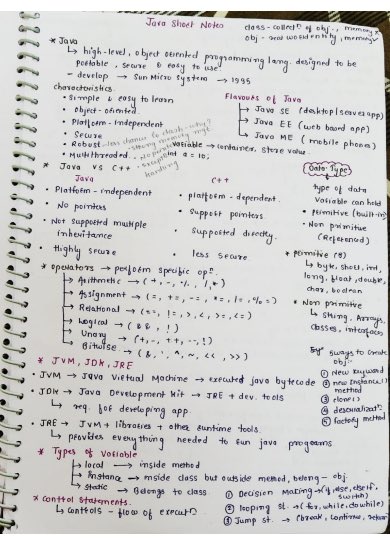 Java Short Notes
class - collectn of obj., memory x
obj - real world entity, memory ✓
* Java
↳ high-level, object oriented programming lang. designed to be
portable, secure & easy to use.
- develop → Sun Micro System → 1995
characteristics.
• Simple & easy to learn
• Object-oriented
• Platform-independent
• Secure
• Robust - less chance to crash
→ strong memory
→ exception handling
• Multithreaded
Flavours of Java
→ Java SE (desktop|server app)
→ Java EE (web based app)
→ Java ME (mobile phones)
Variable → container, store value.
int a = 10;
* Java vs C++
Java C++
• Platform-independent • platform-dependent.
• No pointers • Support pointers
• Not supported multiple inheritance • Supported directly.
• Highly secure • less secure
Data-Type
type of data
Variable can hold
• Primitive (built-in)
• Non primitive
(Referenced)
* primitive (8)
↳ byte, short, int,
long, float, double,
char, boolean
* Non primitive
↳ String, Arrays,
classes, interfaces
* operators → perform specific opn.
→ Arithmetic → (+, -, %, /, *)
→ Assignment → (=, +=, -=, *=, /=, %=)
→ Relational → (==, !=, >, <, >=, <=)
→ Logical → (&&, !)
→ Unary → (+, -, ++, --, !)
→ Bitwise → (&, ^, ~, <<, >>)
5 ways to create
obj:-
① New keyword
② new Instance()
method
③ clone()
④ deserializatn
⑤ factory method
* JVM, JDK, JRE
• JVM → Java Virtual Machine → executed java bytecode
• JDK → Java Development Kit → JRE + dev. tools
↳ req. for developing app
• JRE → JVM + libraries + other runtime tools
↳ provides everything needed to run java programs
* Types of Variable
→ local → inside method
→ Instance → inside class but outside method, belong - obj.
→ static → Belongs to class
* Control Statements.
↳ controls - flow of executn
① Decision Making → (if, else, elseif, switch)
② looping st. → (for, while, do while)
③ Jump st. → (break, continue, return)